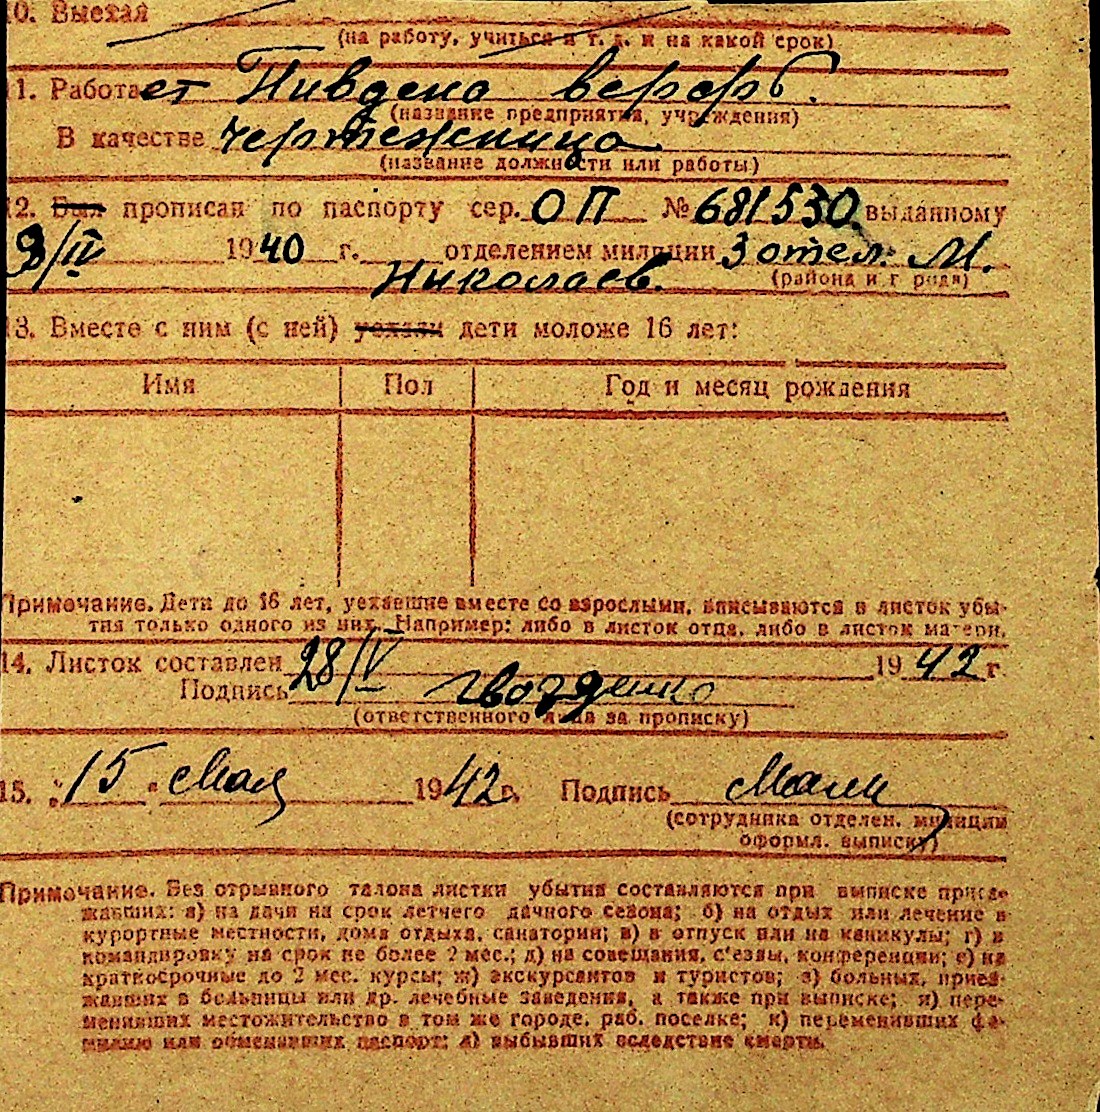 10. Выехал
(на работу, учиться и т. д. и на какой срок)
1. Работает Пивдена верфь.
(название предприятия, учреждения)
В качестве чертежница
(название должности или работы)
12. Был прописан по паспорту сер. ОП № 681530 выданному
9/IV 1940 г. отделением милиции 3 отел. М.
Николаев. (района и г рода)
13. Вместе с ним (с ней) уехали дети моложе 16 лет:
Имя Пол Год и месяц рождения
Примечание. Дети до 16 лет, уехавшие вместе со взрослыми, вписываются в листок убы-
тия только одного из них. Например: либо в листок отца, либо в листок матери.
14. Листок составлен 28/IV 1942 г
Подпись Гвозденко
(ответственного лица за прописку)
15. "15" Мая 1942 г. Подпись
(сотрудника отделен. милиции
оформл. выписку)
Примечание. Без отрывного талона листки убытия составляются при выписке приез-
жавших: а) на дачи на срок летнего дачного сезона; б) на отдых или лечение в
курортные местности, дома отдыха, санатории; в) в отпуск или на каникулы; г) в
командировку на срок не более 2 мес.; д) на совещания, с'езды, конференции; е) на
краткосрочные до 2 мес. курсы; ж) экскурсантов и туристов; з) больных, приез-
жавших в больницы или др. лечебные заведения, а также при выписке; и) пере-
менивших местожительство в том же городе, раб. поселке; к) переменивших фа-
милию или обменявших паспорт; л) выбывших вследствие смерти.